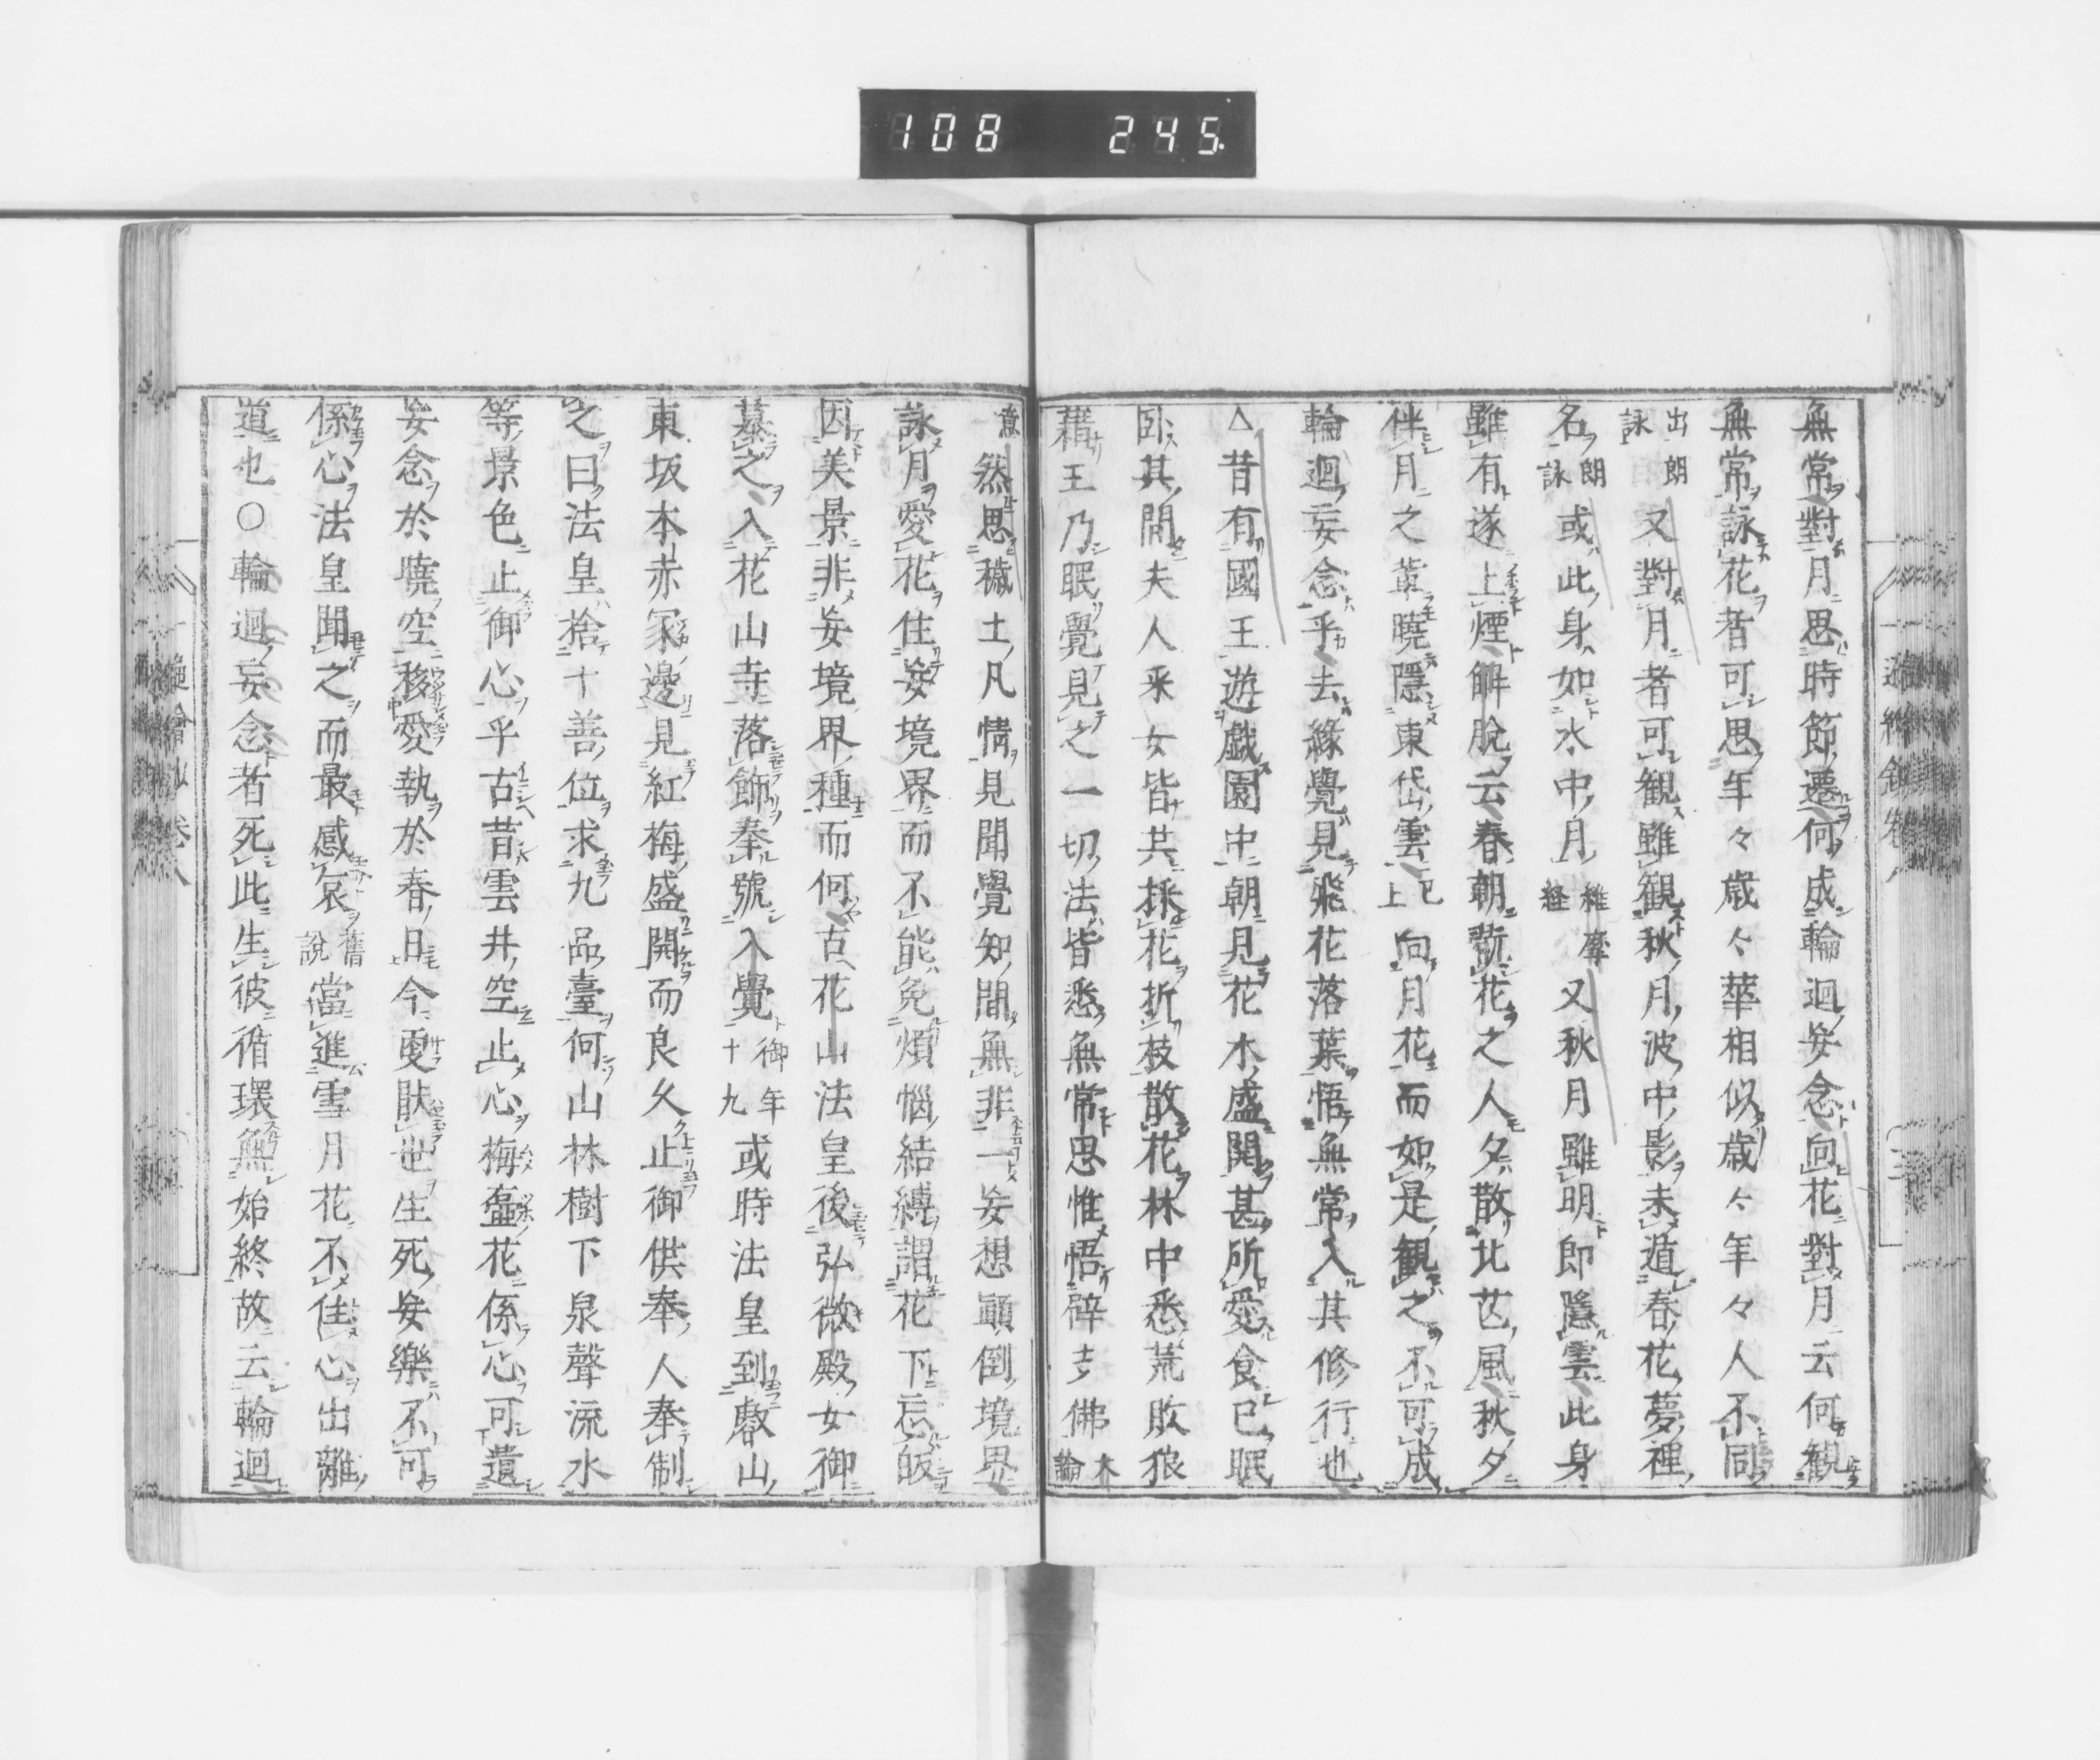 108 245
無常對月思時節遷何成輪迴妄念向花對月云何觀
無常詠花者可思年々歳々華相似歳々年々人不同
出朗詠又對月者可觀雖觀秋月波中影未遁春花夢裡
名朗詠或此身如水中月維摩経又秋月雖明即隱雲此身
雖有遂上煙解脫云春朝翫花之人夕散北芒風秋夕
伴月之輩曉隱東岱雲已上向月花而如是觀之不可成
輪迴妄念乎去緣覺見飛花落葉悟無常入其修行也
△昔有國王遊戯園中朝見花木盛開甚所愛食已眠
臥其間夫人釆女皆共採花折枝散花林中悉荒敗狼
藉王乃眠覺見之一切法皆悉無常思惟悟辟支佛大論
意然思穢土凡情見聞覺知間無非一妄想顚倒境界
詠月愛花住妄境界而不能免煩惱結縛謂花下忘皈
因美景非妄境界種而何古花山法皇後弘徽殿女御
慕之入花山寺落飾奉號入覺御年十九或時法皇到叡山
東坂本赤冢邊見紅梅盛開而良久止御供奉人奉制
之曰法皇捨十善位求九品臺何山林樹下泉聲流水
等景色止御心乎古昔雲井空止心梅壼花係心可遺
妄念於曉空移愛執於春日今更肰也生死妄樂不可
係心法皇聞之而最感哀舊說當進雪月花不住心出離
道也○輪迴妄念者死此生彼循環無始終故云輪迴